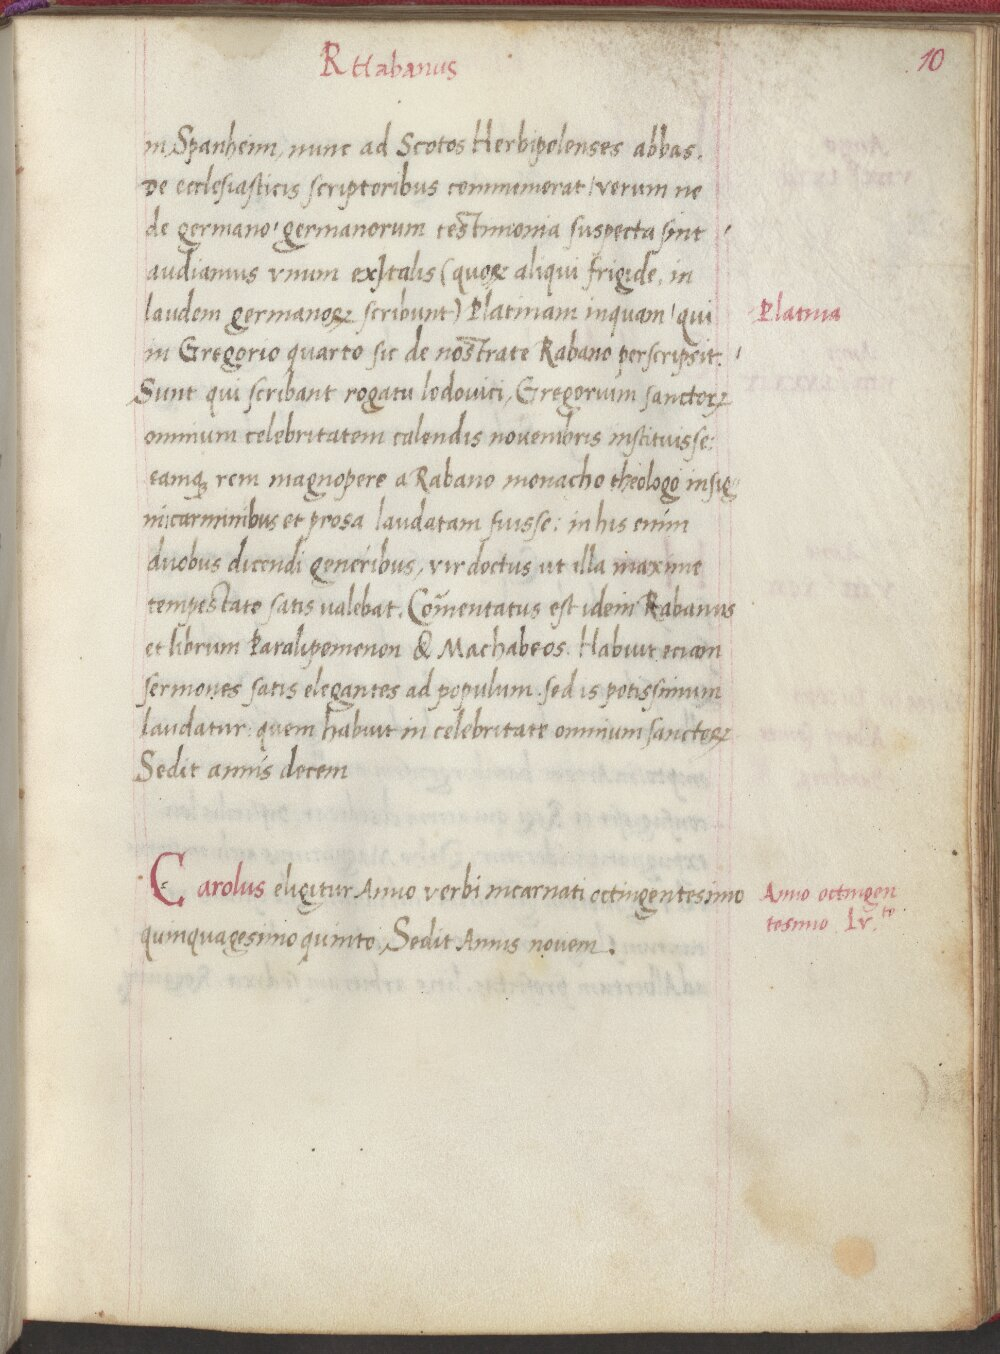 RHabanus
10
in Spanheim, nunc ad Scotos Herbipolenses abbas.
De ecclesiasticis scriptoribus commemorat / verum ne
de germano / germanorum testimonia suspecta sint /
audiamus vnum ex Italis (quoꝝ aliqui frigide, in
laudem germanoꝝ scribunt) Platinam inquam / qui
Platina
in Gregorio quarto sic de nostrate Rabano perscripsit. /
Sunt qui scribant rogatu lodovici, Gregorium sanctoꝝ
omnium celebritatem calendis novembris instituisse:
eamqꝫ rem magnopere a Rabano monacho theologo insig
ni carminibus et prosa laudatam fuisse: in his enim
duobus dicendi generibus, vir doctus ut illa maxime
tempestate satis valebat. Com̄entatus est idem Rabanus
et librum Paralipomenon & Machabeos. Habuit eciam
sermones satis elegantes ad populum. sed is potissimum
laudatur quem habuit in celebritate omnium sanctoꝝ
Sedit annis decem
Carolus eligitur Anno verbi incarnati octingentesimo
Anno octingen
tesimo lv.to
quinquagesimo quinto. Sedit Annis novem.